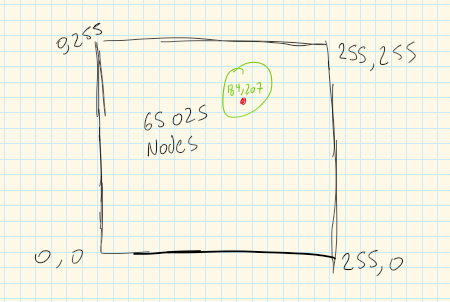 0,255
255,255
184,207
65025
Nodes
0,0
255,0